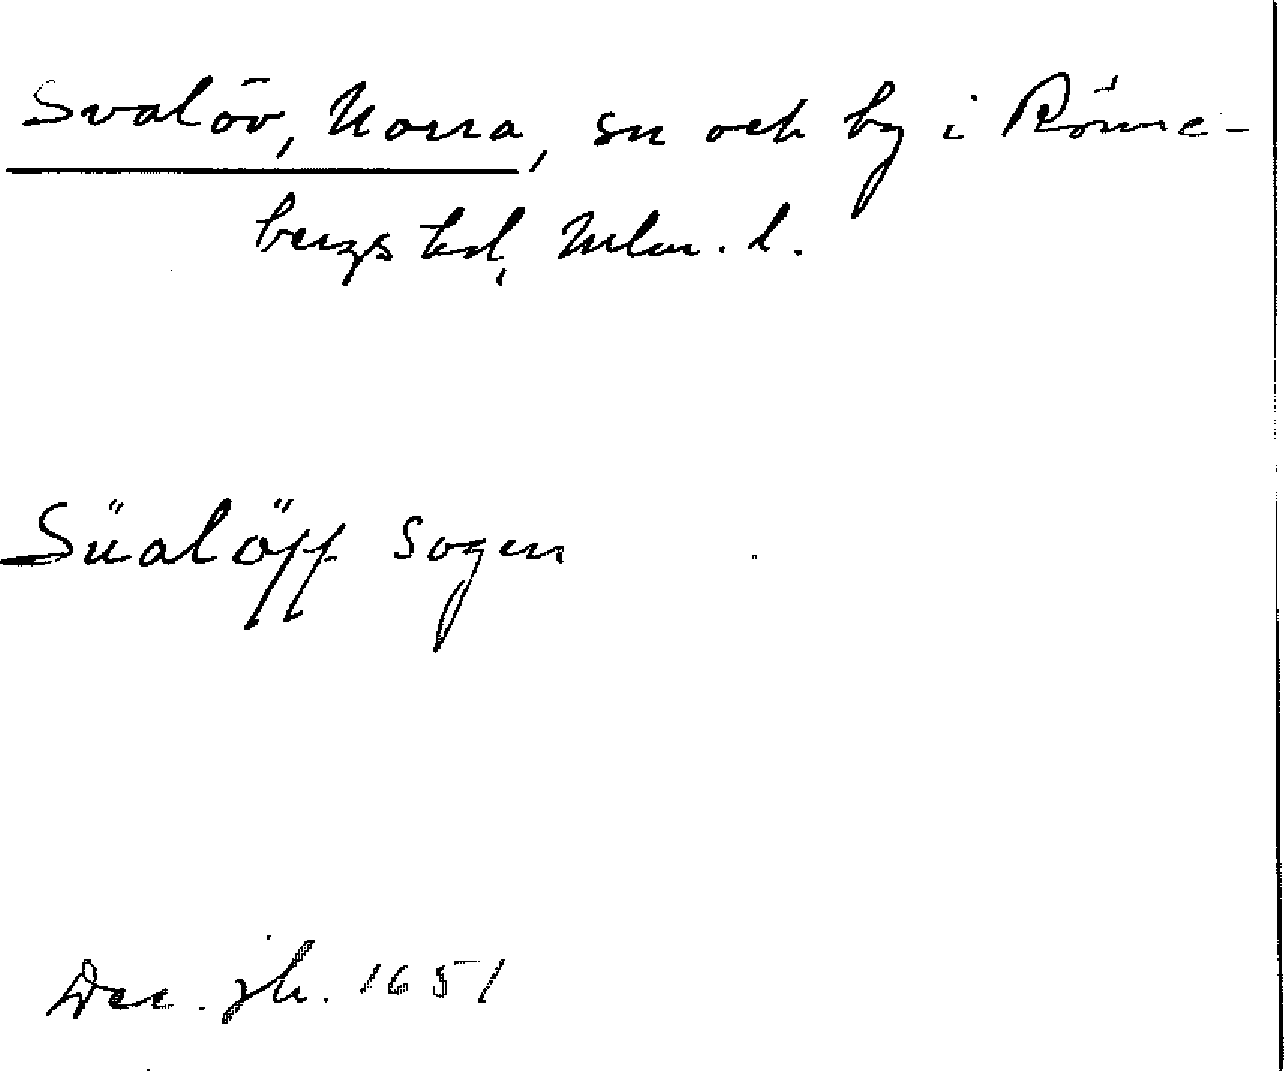 Svalöv, Norra, sn och by i Rönne-
bergs hd, Mlm. l.
Süalöff Sogen
Dec. jb. 1651